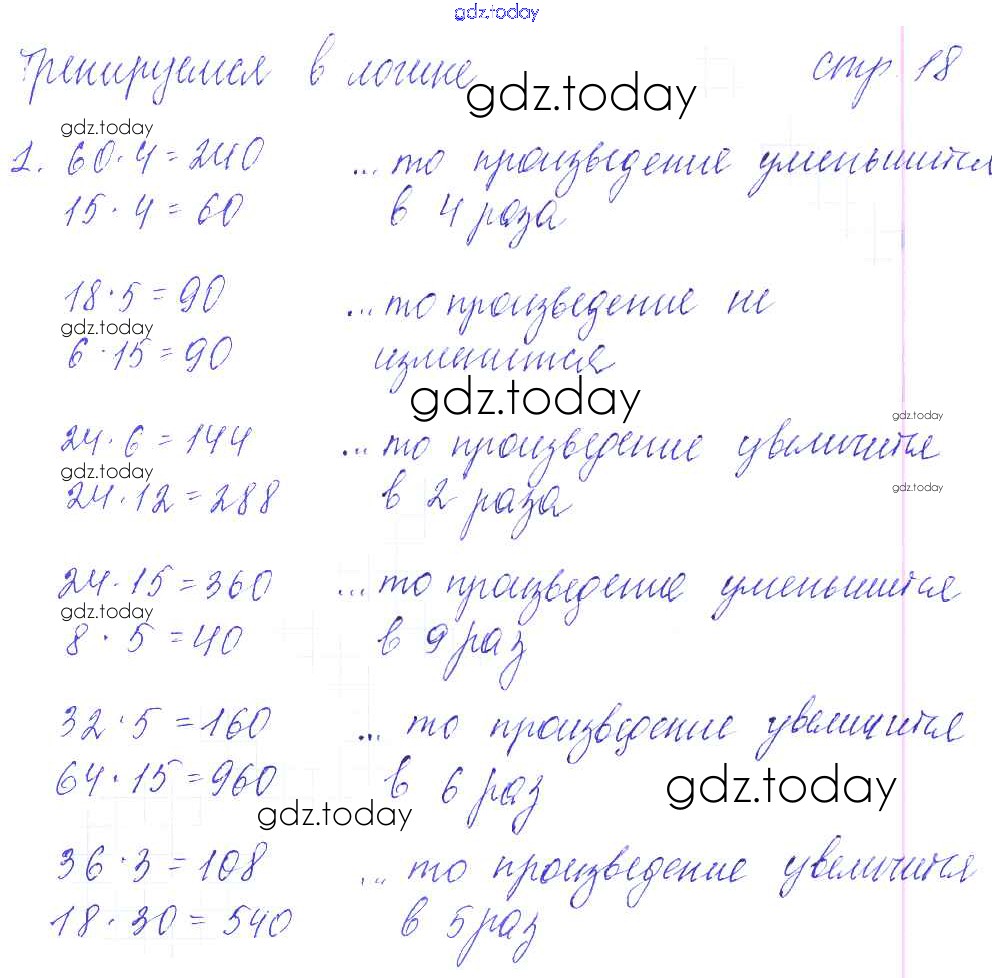 gdz.today
Тренируемся в логике стр. 18
gdz.today
gdz.today
1. 60·4=240 ...то произведение уменьшится
15·4=60 в 4 раза
18·5=90 ...то произведение не
gdz.today
6·15=90 изменится
gdz.today
gdz.today
24·6=144 ...то произведение увеличится
gdz.today
gdz.today
24·12=288 в 2 раза
24·15=360 ...то произведение уменьшится
gdz.today
8·5=40 в 9 раз
32·5=160 ...то произведение увеличится
64·15=960 в 6 раз
gdz.today
gdz.today
36·3=108 ...то произведение увеличится
18·30=540 в 5 раз